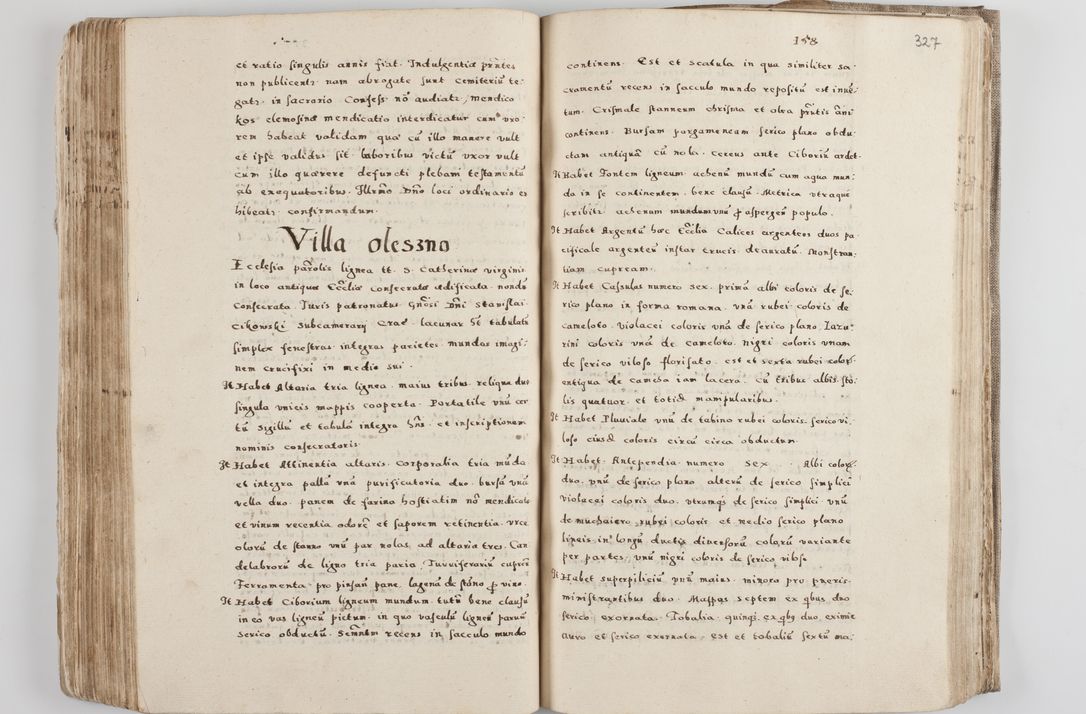 et ratio singulis annis fiat. Indulgentiæ pñtes
non publicentr nam abrogate sunt Cemiteriũ te:
gatr in sacrario Confess nõ audiatr, mendico
kos elemosinæ mendicatio interdicatur cum vxo:
rem habeat validam qua cũ illo manere vult
et ipse validus sit laboribus victũ vxor vult
cum illo quærere defuncti plebani testamentũ
ab exequutoribus Illrmo Dño loci ordinario ex
hibeatr confirmandum.
Villa oleszno
Ecclesia parolis lignea tt. S. Catherinæ virginis
in loco antiquæ Eccliæ consecratæ ædificata nondũ
Consecrata. Iuris patronatus Gnosi Dñi Stanislai
Cikowski Subcamerarij Crac lacunar ht tabulatũ
simplex fenestras integras parietes mundas imagi:
nem crucifixi in medio sui.
It Habet Altaria tria lignea. maius tribus reliqua duo
singula vnicis mappis cooperta. Portatile vnũ cer
tũ sigillũ et tabulã integrã hñs. et inscriptionem
nominis consecratoris.
It Habet Attinentia altaris. Corporalia tria mũda
et integra pallã vnã purificatoria duo. bursã vnã
vella duo. panem de farina hostiatim nõ mendicato
et vinum recentia odorẽ et saporem retinentia. vrce
olorũ de stanno vnũ par nolas ad altaria tres. Can
delabrorũ de ligno tria paria, Turriferoriũ cupreũ
Ferramenta pro pinsañ pane. lagenã de stãno p vino.
It Habet Ciborium ligneum mundum tutũ bene clausũ
in eo vas ligneũ pictum. in quo vasculũ ligneũ paruũ
serico obductũ. Semñtum recens in sacculo mundo
158
327
continens. Est et scatula in qua similiter sa:
cramentũ recens in sacculo mundo repositũ est inuẽ:
tum. Crismale stanneum chrisma et olea pñtis ãni
continens. Bursam pargameneam serico plano obdu:
ctam antiquã cũ nola. cereus ante Ciboriũ ardet.
It Habet Fontem ligneum. achenũ mundũ cum aqua mun:
da in se continentem. bene clausũ. Metrica vtraque
scribitr achenum mundum vnũ p aspergeñ populo.
It Habet Argentũ hæc Ecclia Calices argenteos duos pa:
cificale argenteũ instar crucis deauratũ. Monstran:
tiam cupream.
It Habet Casulas numero sex. primã albi coloris de se:
rico plano in forma romana. vnã rubei coloris de
cameloto. violacei coloris vnã de serico plano. Lazu:
rini coloris vnã de cameloto. nigri coloris vnam
de serico viloso florisato. est et sexta rubei coloris
antiqua de camcha iam lacera. cũ tribus albis. sto:
lis quatuor. et totidẽ manipularibus.
It Habet Pluuiale vnũ de tabino rubei coloris. serico vi:
loso eiusdẽ coloris circũ circa obductum.
It Habet. Antependia numero sex. Albi coloris
duo. vnũ de serico plano. alterũ de serico simplici
violacei coloris duo. vtrumqe de serico simplici vnũ
de muchaiero rubei coloris. et medio serico plano
lineis in longũ ductis diuersorũ colorũ variante
per partes, vnũ nigri coloris de serico viloso
It Habet superpiliciũ vnũ maius. minora pro pueris
ministrantibus duo. Mappas septem ex qbus duo
serico exornata. Tobalia quinqe. ex qbs duo. eximie
auro et serico exornata. Est et tobaliũ sextũ ma: